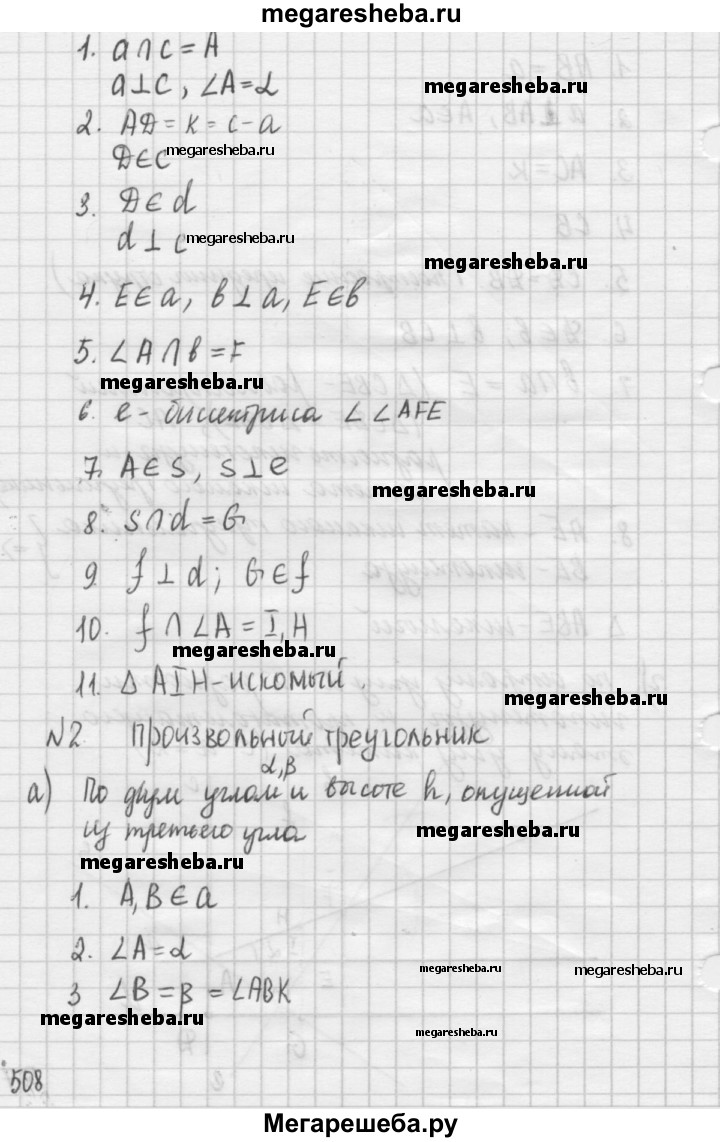 megaresheba.ru
1. a∩c = A
a⊥c, ∠A=α
megaresheba.ru
2. AD = k = c-a
D∈c megaresheba.ru
3. D∈d
d⊥c megaresheba.ru
megaresheba.ru
4. E∈a, b⊥a, E∈b
5. ∠A∩b = F
megaresheba.ru
6. e - биссектриса ∠ ∠AFE
7. A∈s, s⊥e
megaresheba.ru
8. s∩d = G
9 f⊥d; G∈f
10. f∩∠A = I, H
megaresheba.ru
11. Δ AIH - искомый
megaresheba.ru
N2 Произвольный треугольник
α,β
а) По двум углам и высоте h, опущенной
из третьего угла
megaresheba.ru
megaresheba.ru
1. A, B∈a
2. ∠A = α
megaresheba.ru
megaresheba.ru
3 ∠B = β = ∠ABK
megaresheba.ru
megaresheba.ru
508
Мегарешеба.ру